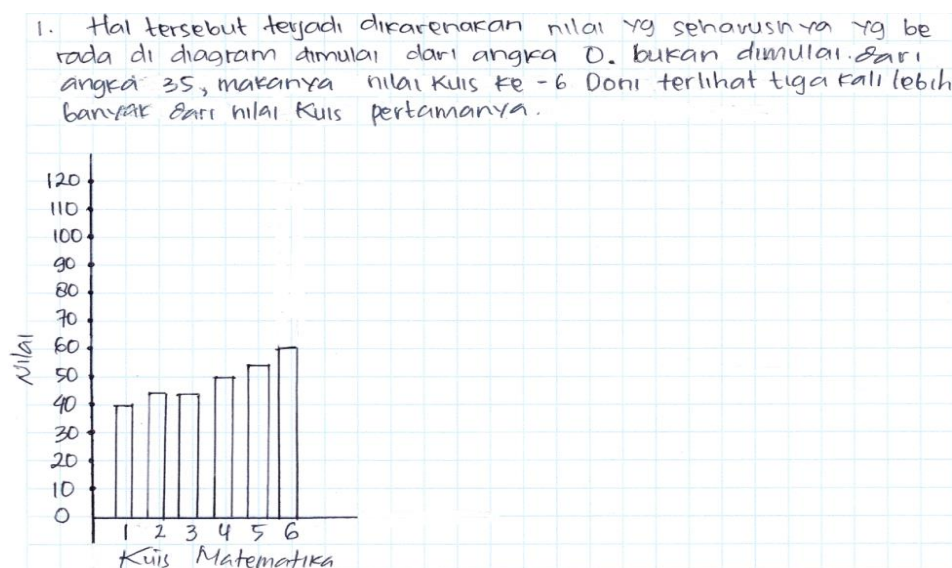 1. Hal tersebut terjadi dikarenakan nilai yg seharusnya yg be
rada di diagram dimulai dari angka 0. bukan dimulai dari
angka 35, makanya nilai kuis ke-6 Doni terlihat tiga kali lebih
banyak dari nilai kuis pertamanya.
120
110
100
90
80
70
60
50
40
30
20
10
0
Nilai
1 2 3 4 5 6
Kuis Matematika